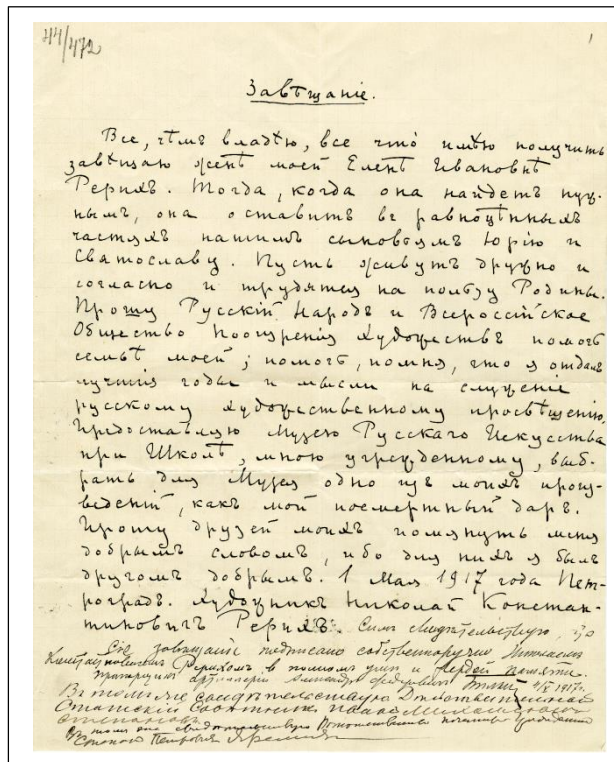 44/472
1
Завѣщаніе.
Все, чѣмъ владѣю, все что имѣю получить
завѣщаю женѣ моей Еленѣ Ивановнѣ
Рерихъ. Тогда, когда она найдетъ нуж-
нымъ, она оставитъ въ равноцѣнныхъ
частяхъ нашимъ сыновьямъ Юрію и
Святославу. Пусть живутъ дружно и
согласно и трудятся на пользу Родины.
Прошу Русскій Народъ и Всероссійское
Общество Поощренія Художествъ помочь
семьѣ моей; помочь, помня, что я отдалъ
лучшіе годы и мысли на служеніе
русскому художественному просвѣщенію.
Предоставляю Музею Русскаго Искусства
при Школѣ, мною учрежденному, выб-
рать для Музея одно изъ моихъ произ-
веденій, какъ мой посмертный даръ.
Прошу друзей моихъ помянуть меня
добрымъ словомъ, ибо для нихъ я былъ
другомъ добрымъ. 1 Мая 1917 года Пет-
роградъ. Художникъ Николай Констан-
тиновичъ Рерихъ. Симъ свидѣтельствую, что
Сіе завѣщаніе подписано собственноручно Николаемъ
Константиновичемъ Рерихомъ въ полномъ умѣ и твердой памяти.
1917г.
Въ томъ же свидѣтельствую Дѣйствительный
Статскій Совѣтникъ Иванъ Михайловичъ
Степановъ
Въ томъ же свидѣтельствую Потомственный почетный гражданинъ
Степанъ Петровичъ Яремичъ